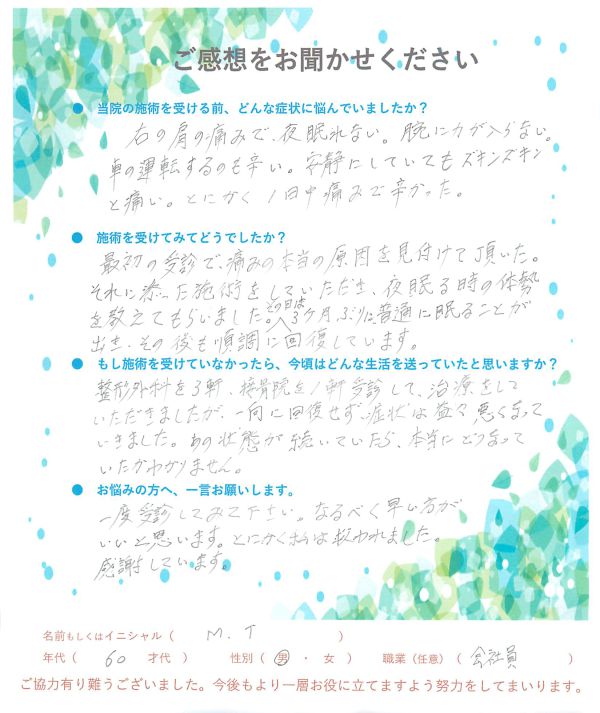 ご感想をお聞かせください
● 当院の施術を受ける前、どんな症状に悩んでいましたか？
右の肩の痛みで、夜眠れない。腕に力が入らない。
車の運転するのも辛い。安静にしていてもズキンズキン
と痛い。とにかく1日中痛みで辛かった。
● 施術を受けてみてどうでしたか？
最初の受診で、痛みの本当の原因を見付けて頂いた。
それに添った施術をしていただき、夜眠る時の体勢
を教えてもらいました。その日は3ヶ月ぶりに普通に眠ることが
出き、その後も順調に回復しています。
● もし施術を受けていなかったら、今頃はどんな生活を送っていたと思いますか？
整形外科を3軒、接骨院を1軒受診して、治療をして
いただきましたが、一向に回復せず、症状は益々悪くなって
いきました。あの状態が続いていたら、本当にどうなって
いたかわかりません。
● お悩みの方へ、一言お願いします。
一度受診してみて下さい。なるべく早い方が
いいと思います。とにかく私は救われました。
感謝しています。
名前もしくはイニシャル（ M.T ）
年代（ 60 才代 ） 性別（ 男 ・ 女 ） 職業（任意）（ 会社員 ）
ご協力有り難うございました。今後もより一層お役に立てますよう努力をしてまいります。